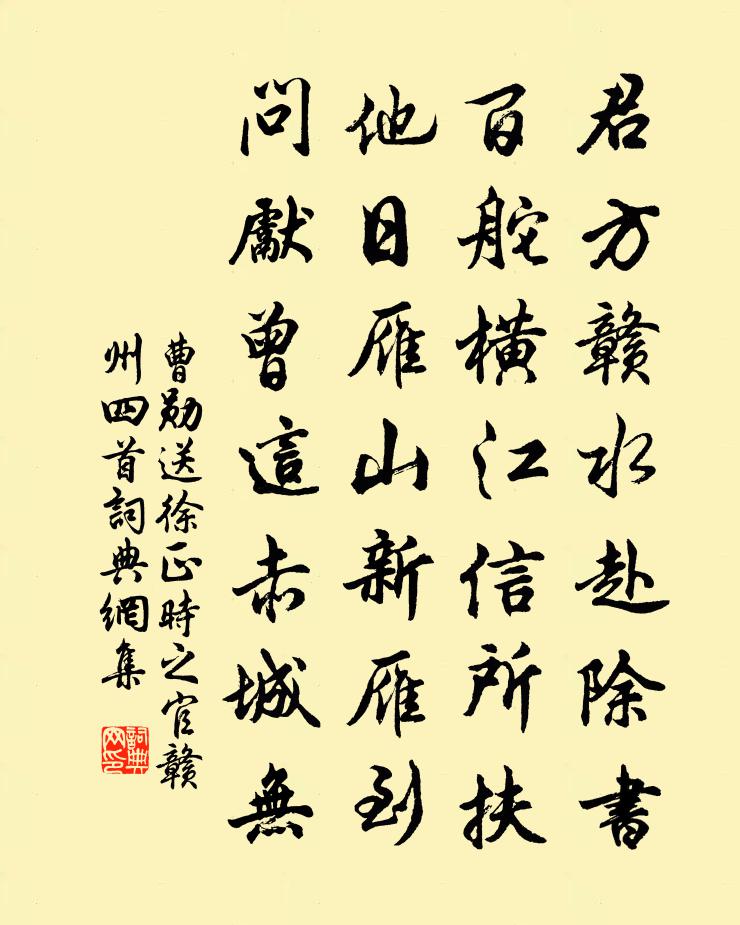 君方赣水赴除書
百舵橫江信所扶
他日雁山新雁到
問獻曾這赤城無
曹勋送徐正時之官赣
州四首詞典網集
詞典
网印